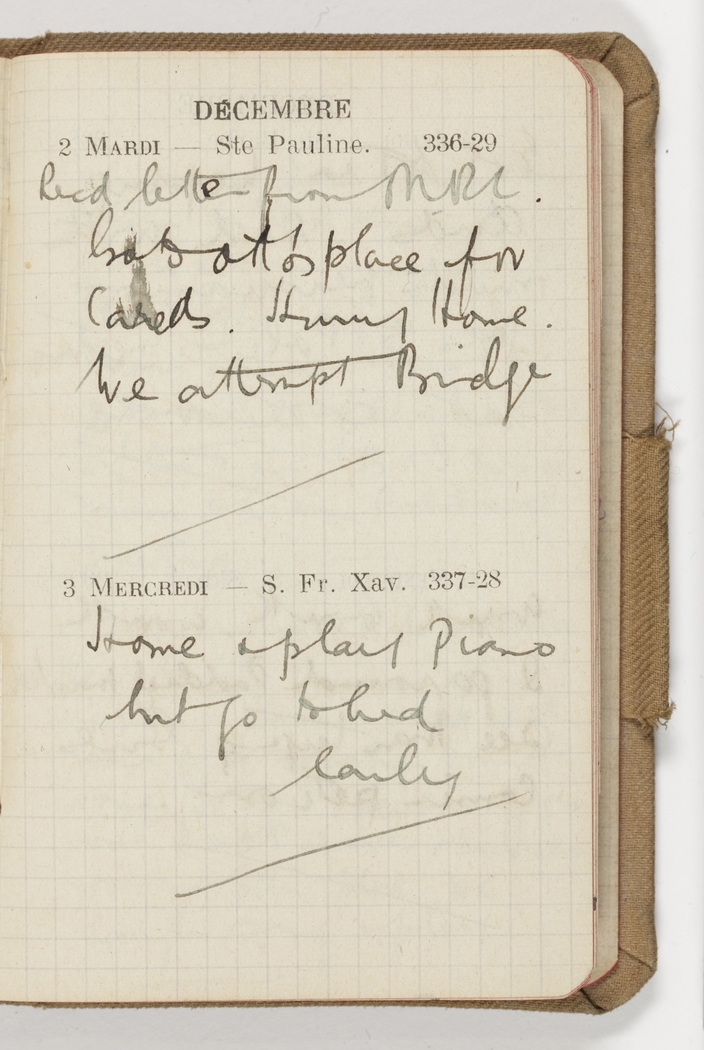 DÉCEMBRE
2 MARDI — Ste Pauline. 336-29
Recd letter from MRC.
Go to Otto's place for
Cards. Hurry Home.
We attempt Bridge
3 MERCREDI — S. Fr. Xav. 337-28
Home & play Piano
but go to bed
early